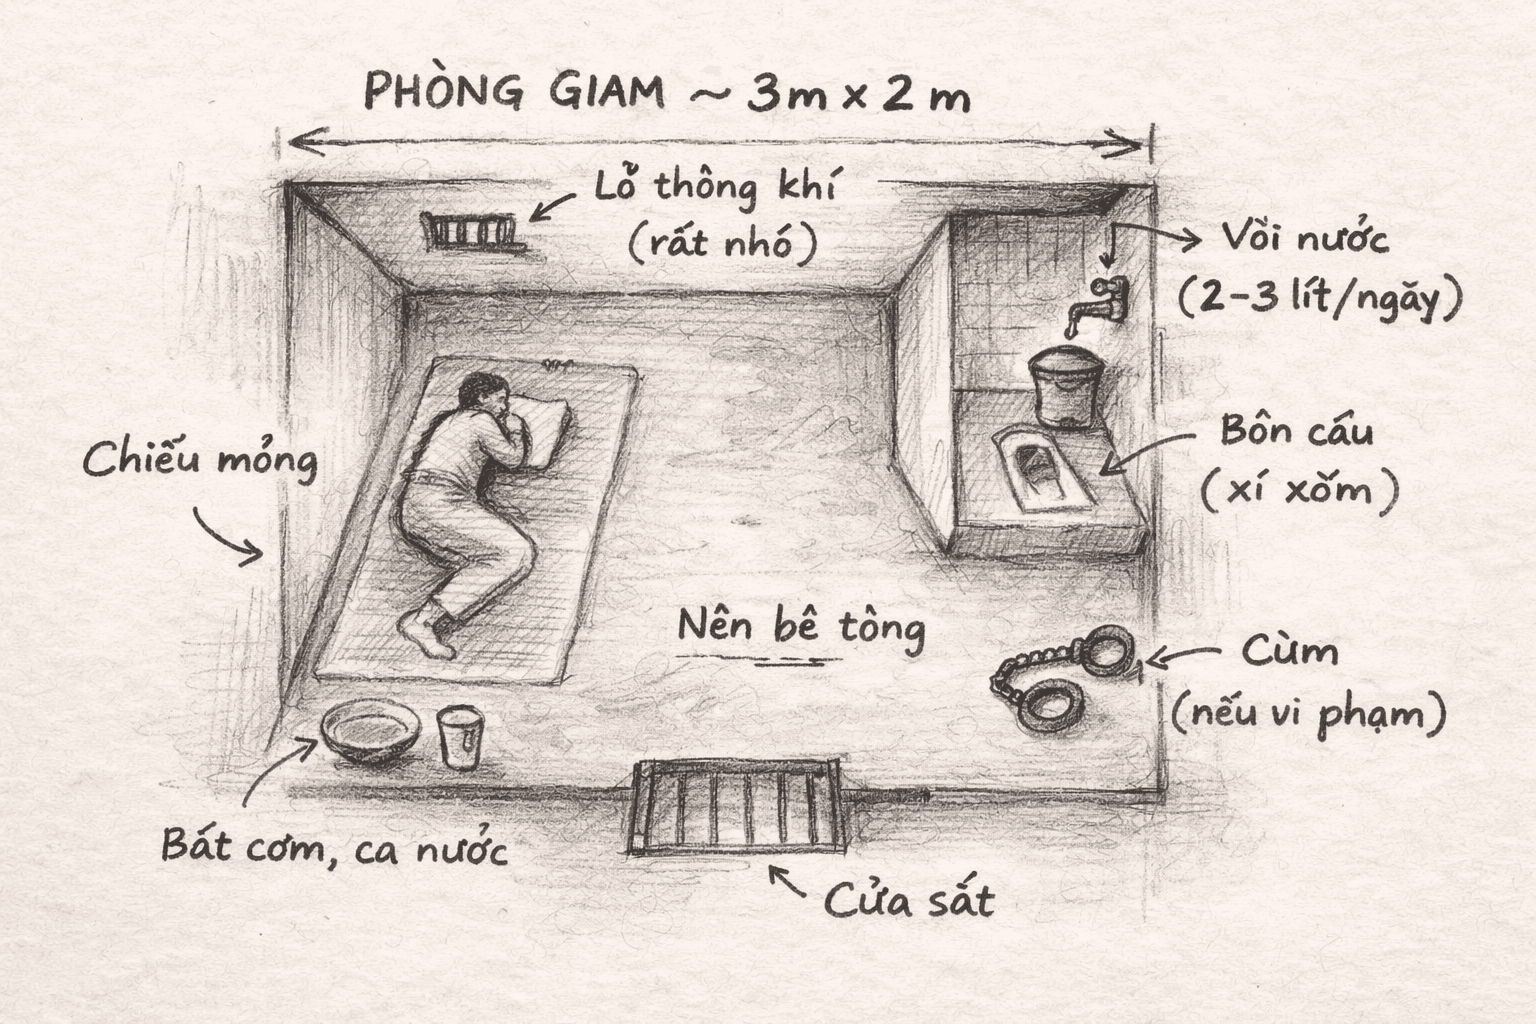 PHÒNG GIAM ~ 3m x 2 m
Lỗ thông khí
(rất nhỏ)
Vòi nước
(2-3 lít/ngăy)
Chiếu mỏng
Bôn cáu
(xí xổm)
Nên bê tông
Cùm
(nếu vi phạm)
Bát cơm, ca nước
Cửa sắt